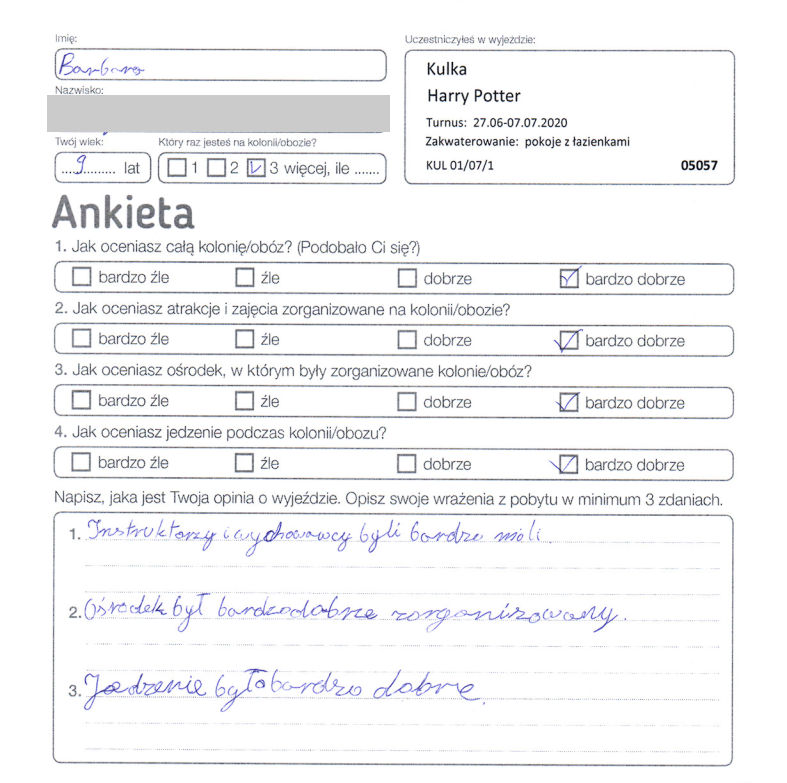 Imię:
Barbara
Nazwisko:
Twój wiek:
9 lat
Który raz jesteś na kolonii/obozie?
1 2 3 więcej, ile .......
Uczestniczyłeś w wyjeździe:
Kulka
Harry Potter
Turnus: 27.06-07.07.2020
Zakwaterowanie: pokoje z łazienkami
KUL 01/07/1 05057
Ankieta
1. Jak oceniasz całą kolonię/obóz? (Podobało Ci się?)
bardzo źle źle dobrze bardzo dobrze
2. Jak oceniasz atrakcje i zajęcia zorganizowane na kolonii/obozie?
bardzo źle źle dobrze bardzo dobrze
3. Jak oceniasz ośrodek, w którym były zorganizowane kolonie/obóz?
bardzo źle źle dobrze bardzo dobrze
4. Jak oceniasz jedzenie podczas kolonii/obozu?
bardzo źle źle dobrze bardzo dobrze
Napisz, jaka jest Twoja opinia o wyjeździe. Opisz swoje wrażenia z pobytu w minimum 3 zdaniach.
1. Instruktorzy i wychowawcy byli bardzo mili.
2. Ośrodek był bardzo dobrze zorganizowany.
3. Jedzenie było bardzo dobre.